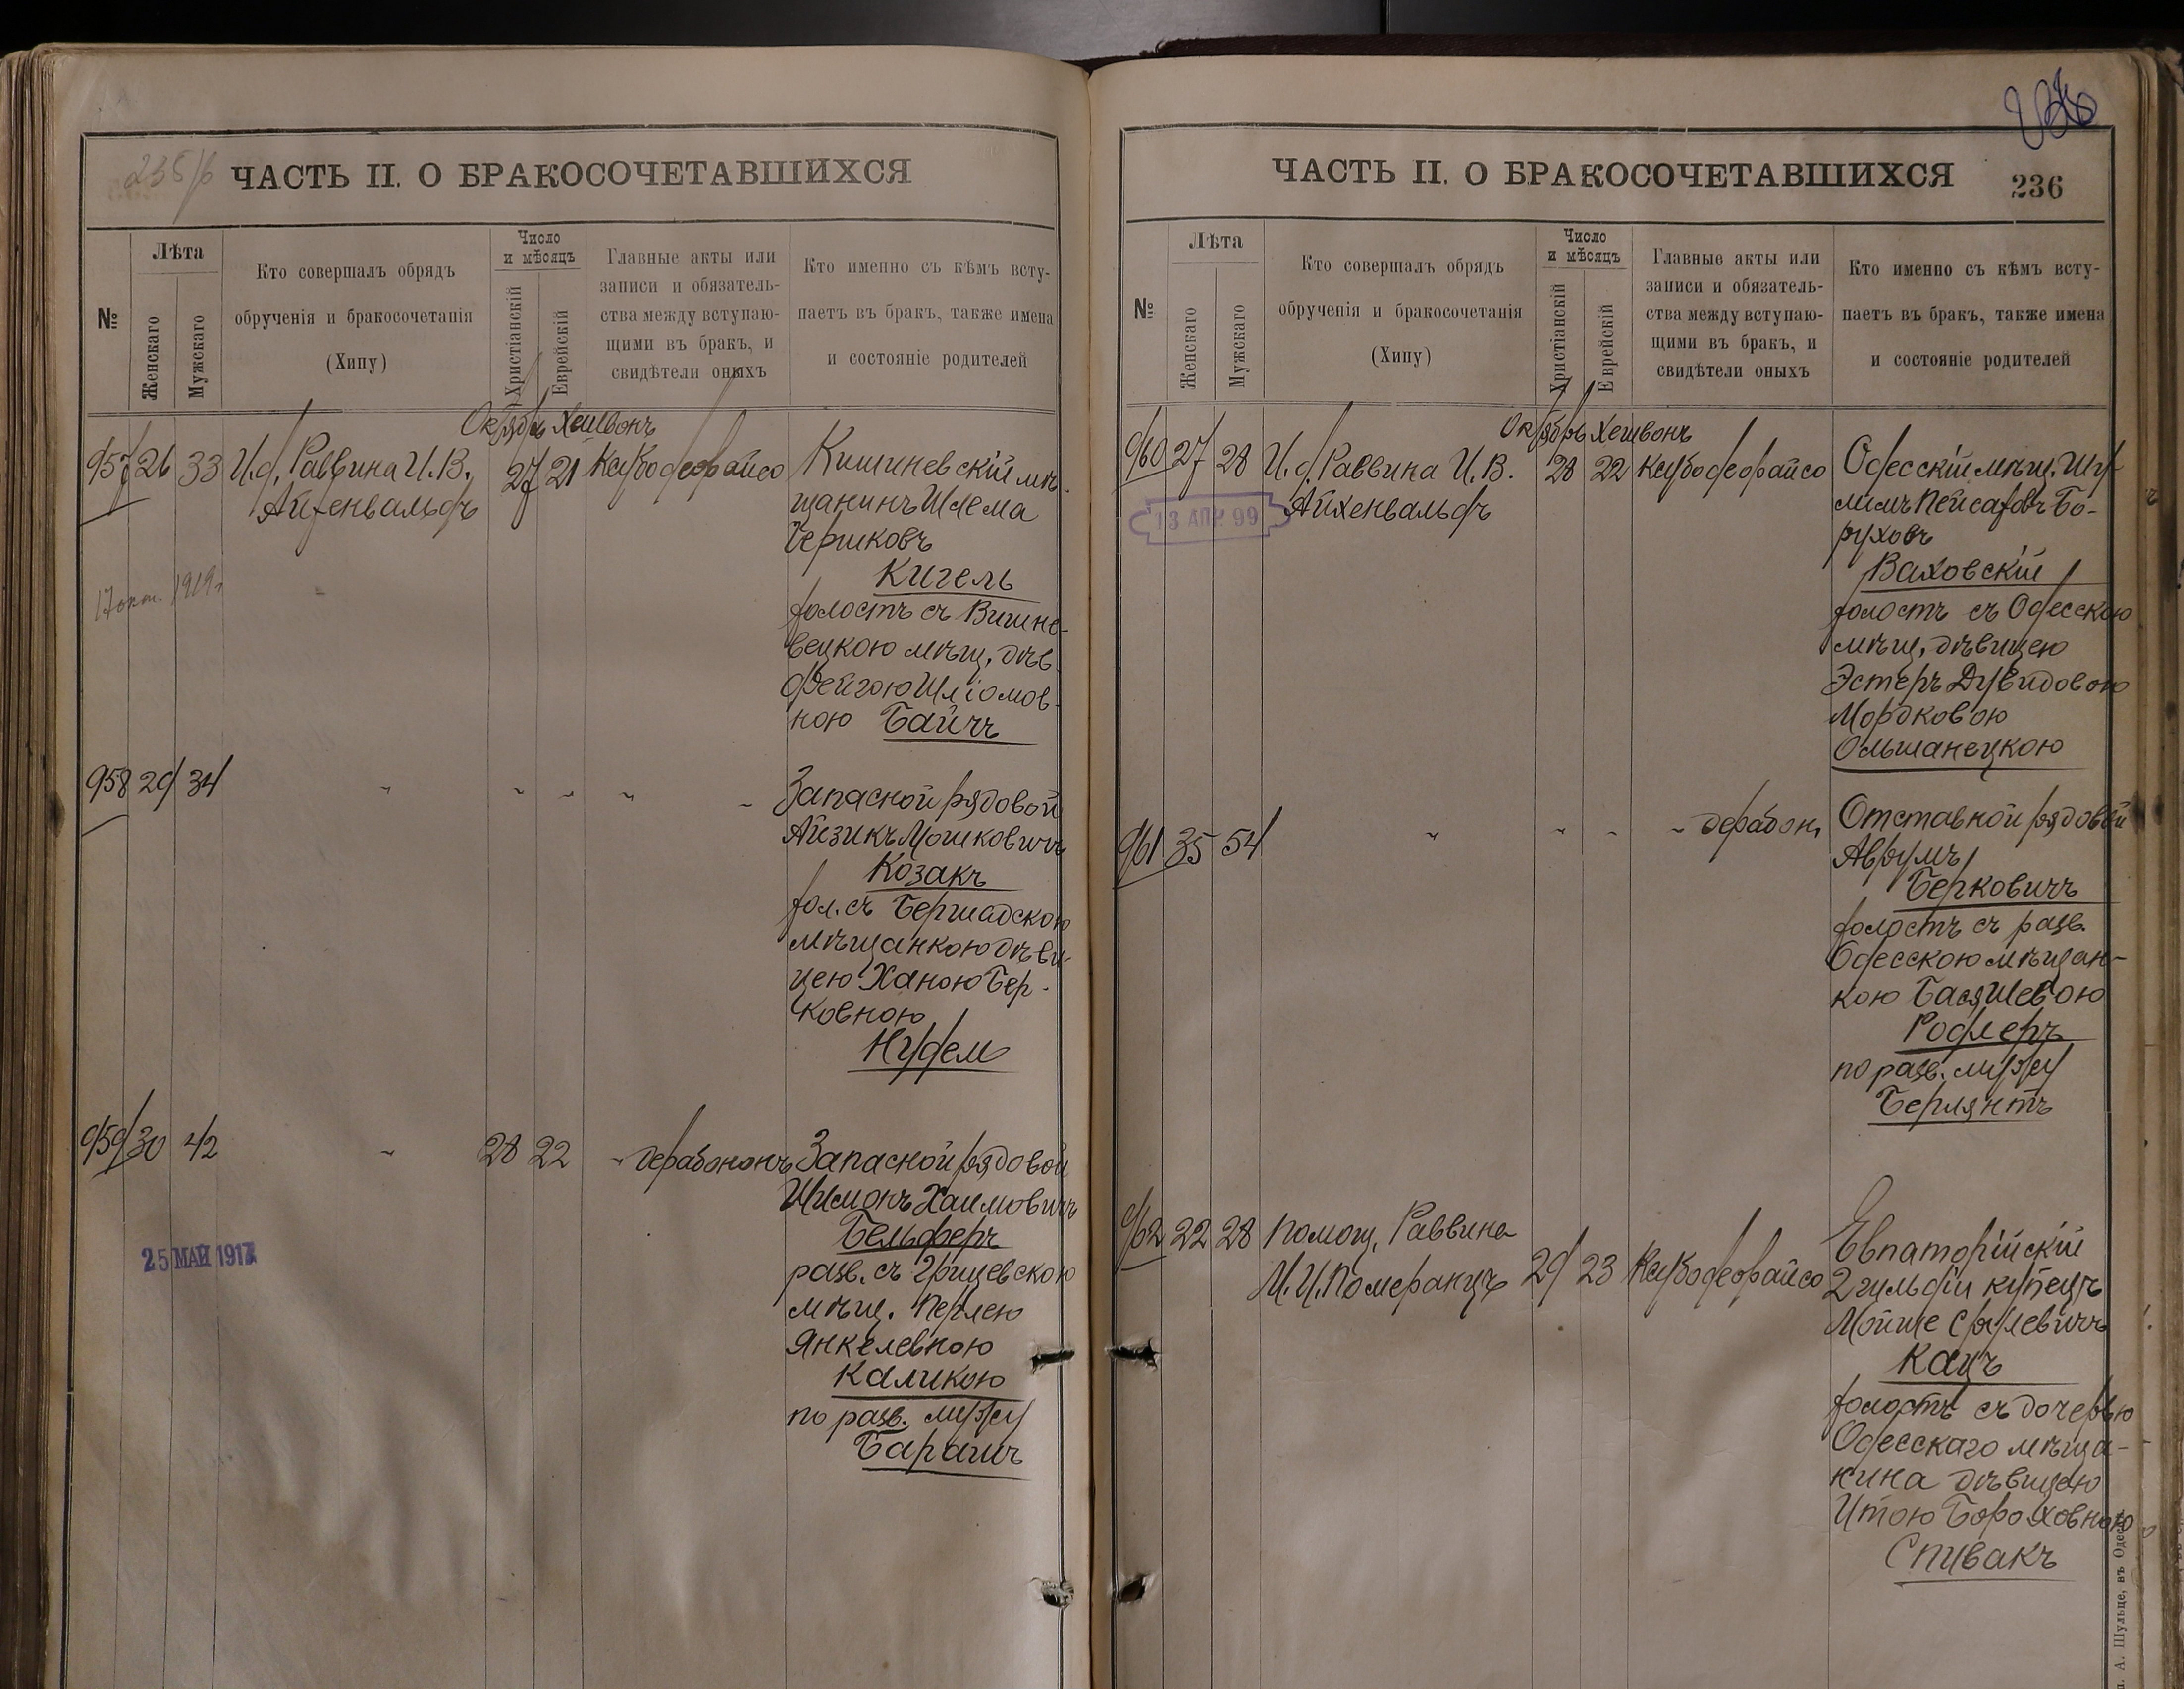 235/б
ЧАСТЬ II. О БРАКОСОЧЕТАВШИХСЯ
№
Лѣта
Женскаго
Мужскаго
Кто совершалъ обрядъ
обрученія и бракосочетанія
(Хипу)
Число
и мѣсяцъ
Христіанскій
Еврейскій
Главные акты или
записи и обязатель-
ства между вступаю-
щими въ бракъ, и
свидѣтели оныхъ
Кто именно съ кѣмъ всту-
паетъ въ бракъ, также имена
и состояніе родителей
Октябрь Хешвонъ
957 26 33 И.д. Раввина И.В.
Айхенвальдъ
27 21
Кишиневскій мѣ-
щанинъ Шлема
Берковъ
Кигель
холостъ съ Вишне-
вецкою мѣщ. дѣв.
Фейгою Шліомов-
ною Байчъ
17 окт. 1919 г.
958 29 34 " " " " "
Запасной рядовой
Айзикъ Мошковичъ
Козакъ
хол. съ Бершадскою
мѣщанкою дѣви-
цею Ханою Бер-
ковною
959 30 42 " 28 22 "
Запасной рядовой
Шимонъ Хаимовичъ
Бельферъ
разв. съ Грицевскою
мѣщ. Перлею
Янкелевною
Каликою
по разв. мужу
25 МАЙ 1917
ЧАСТЬ II. О БРАКОСОЧЕТАВШИХСЯ
236
№
Лѣта
Женскаго
Мужскаго
Кто совершалъ обрядъ
обрученія и бракосочетанія
(Хипу)
Число
и мѣсяцъ
Христіанскій
Еврейскій
Главные акты или
записи и обязатель-
ства между вступаю-
щими въ бракъ, и
свидѣтели оныхъ
Кто именно съ кѣмъ всту-
паетъ въ бракъ, также имена
и состояніе родителей
Октябрь Хешвонъ
960 27 28 И.д. Раввина И.В.
Айхенвальдъ
28 22
13 АПР. 99
Одесскій мѣщ. Шу-
лимъ Пейсаховъ Бо-
руховъ
Ваховскій
холостъ съ Одесскою
мѣщ. дѣвицею
Эстеръ Дувидовою
Мордковою
Ольшанецкою
961 35 54 " " " " дерабон.
Отставной рядовой
Аврумъ
Берковичъ
холостъ съ разв.
Одесскою мѣщан-
кою Басяшевою
Рофлеръ
по разв. мужу
Берлянтъ
962 22 28 помощ. Раввина
М.И. Померанцъ
29 23
Евпаторійскій
2 гильдіи купецъ
Мойше Срулевичъ
Кацъ
холостъ съ дочерью
Одесскаго мѣща-
нина дѣвицею
Итою Бороховною
Спивакъ
А. Шульце, въ Одессѣ.